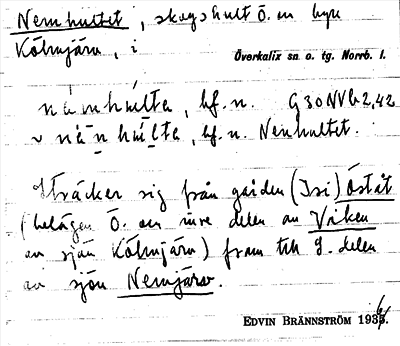 Nemhultet, skogshult Ö. om byn
Kölmjärv, i
Överkalix sn o. tg. Norrb. l.
hf. n. G30NVb2,42
hf. n. Nemhultet.
Sträcker sig från gården (Isi) Östät
(belägen Ö. om inre delen av Viken
av sjön Kölmjärv) fram till S. delen
av sjön Nemjärv.
EDVIN BRÄNNSTRÖM 193